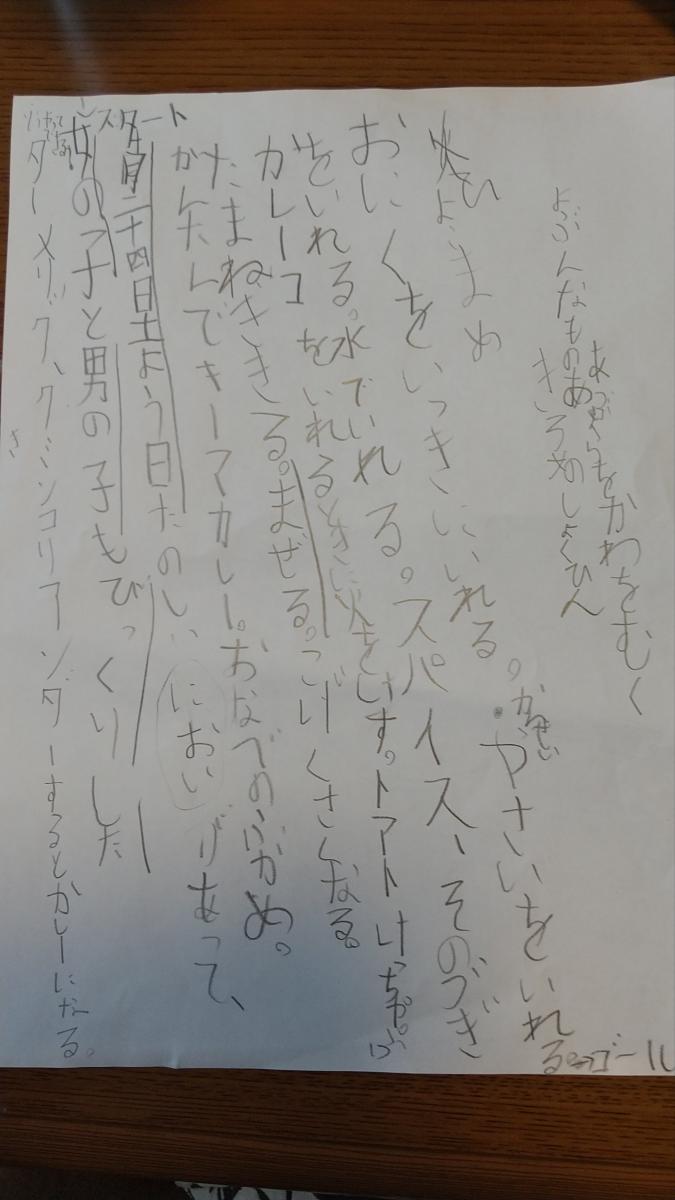 スタート
ターメリック、クミンコリアーンダーするとかレーになる。
女の子と男の子もびっくりした
月二十四日土よう日たのしいにおいがあって、
かんたんでキーマカレー。おなべのふかめ。
たまねぎきる。まぜる。こげくさくなる
カレーコをいれるときに火をけす。トマトけちゃっぷ
をいれる。水でいれる。スパイス、そのづぎ
おにくをいっきにいれる。やさいをいれる
ゴール
よぶんなものあ
かわをむく
しょくひん